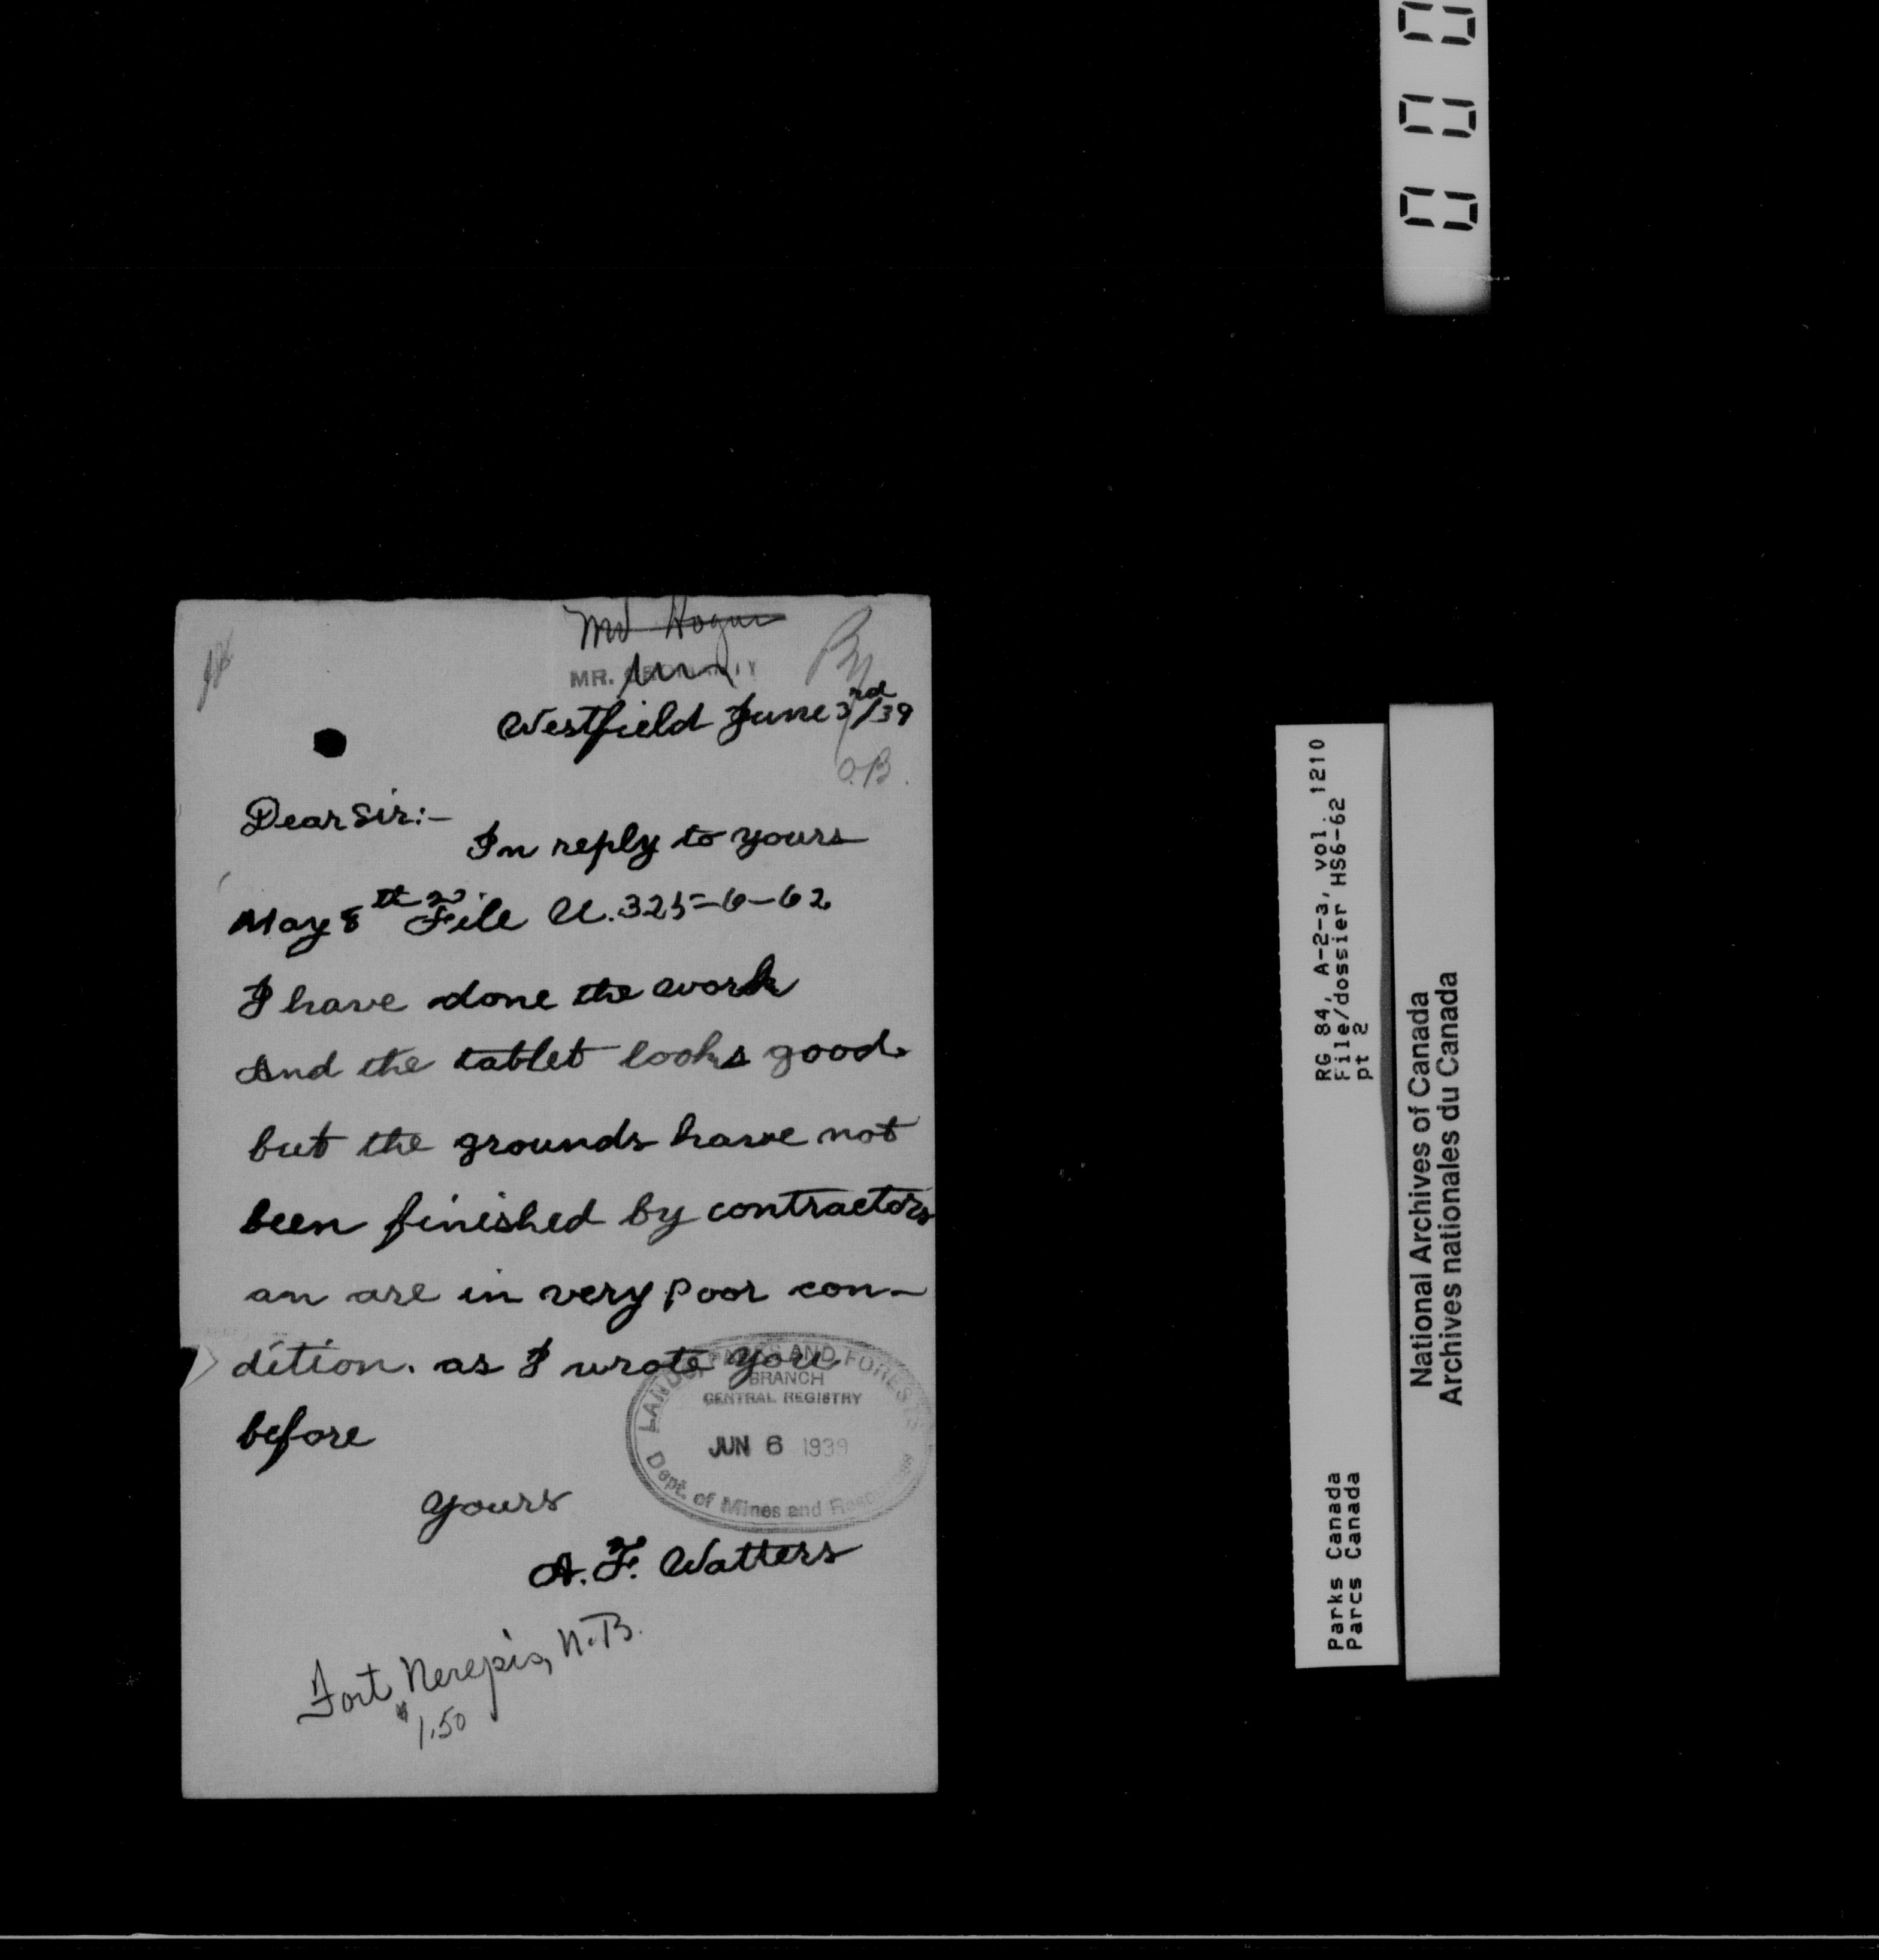 Mr Hogan
MR.
Westfield June 3rd/39
O.B.
Dear Sir:-
In reply to yours
May 8th File U.325-6-62
I have done the work
And the tablet looks good
but the grounds have not
been finished by contractors
an are in very poor con-
dition. as I wrote you
before
Yours
A.F. Watters
Fort Nerepis, N.B.
$1.50
LANDS, PARKS AND FORESTS
BRANCH
CENTRAL REGISTRY
JUN 6 1939
Dept. of Mines and Resources
000
RG 84, A-2-3, vol. 1210
File/dossier HS6-62
pt 2
Parks Canada
Parcs Canada
National Archives of Canada
Archives nationales du Canada